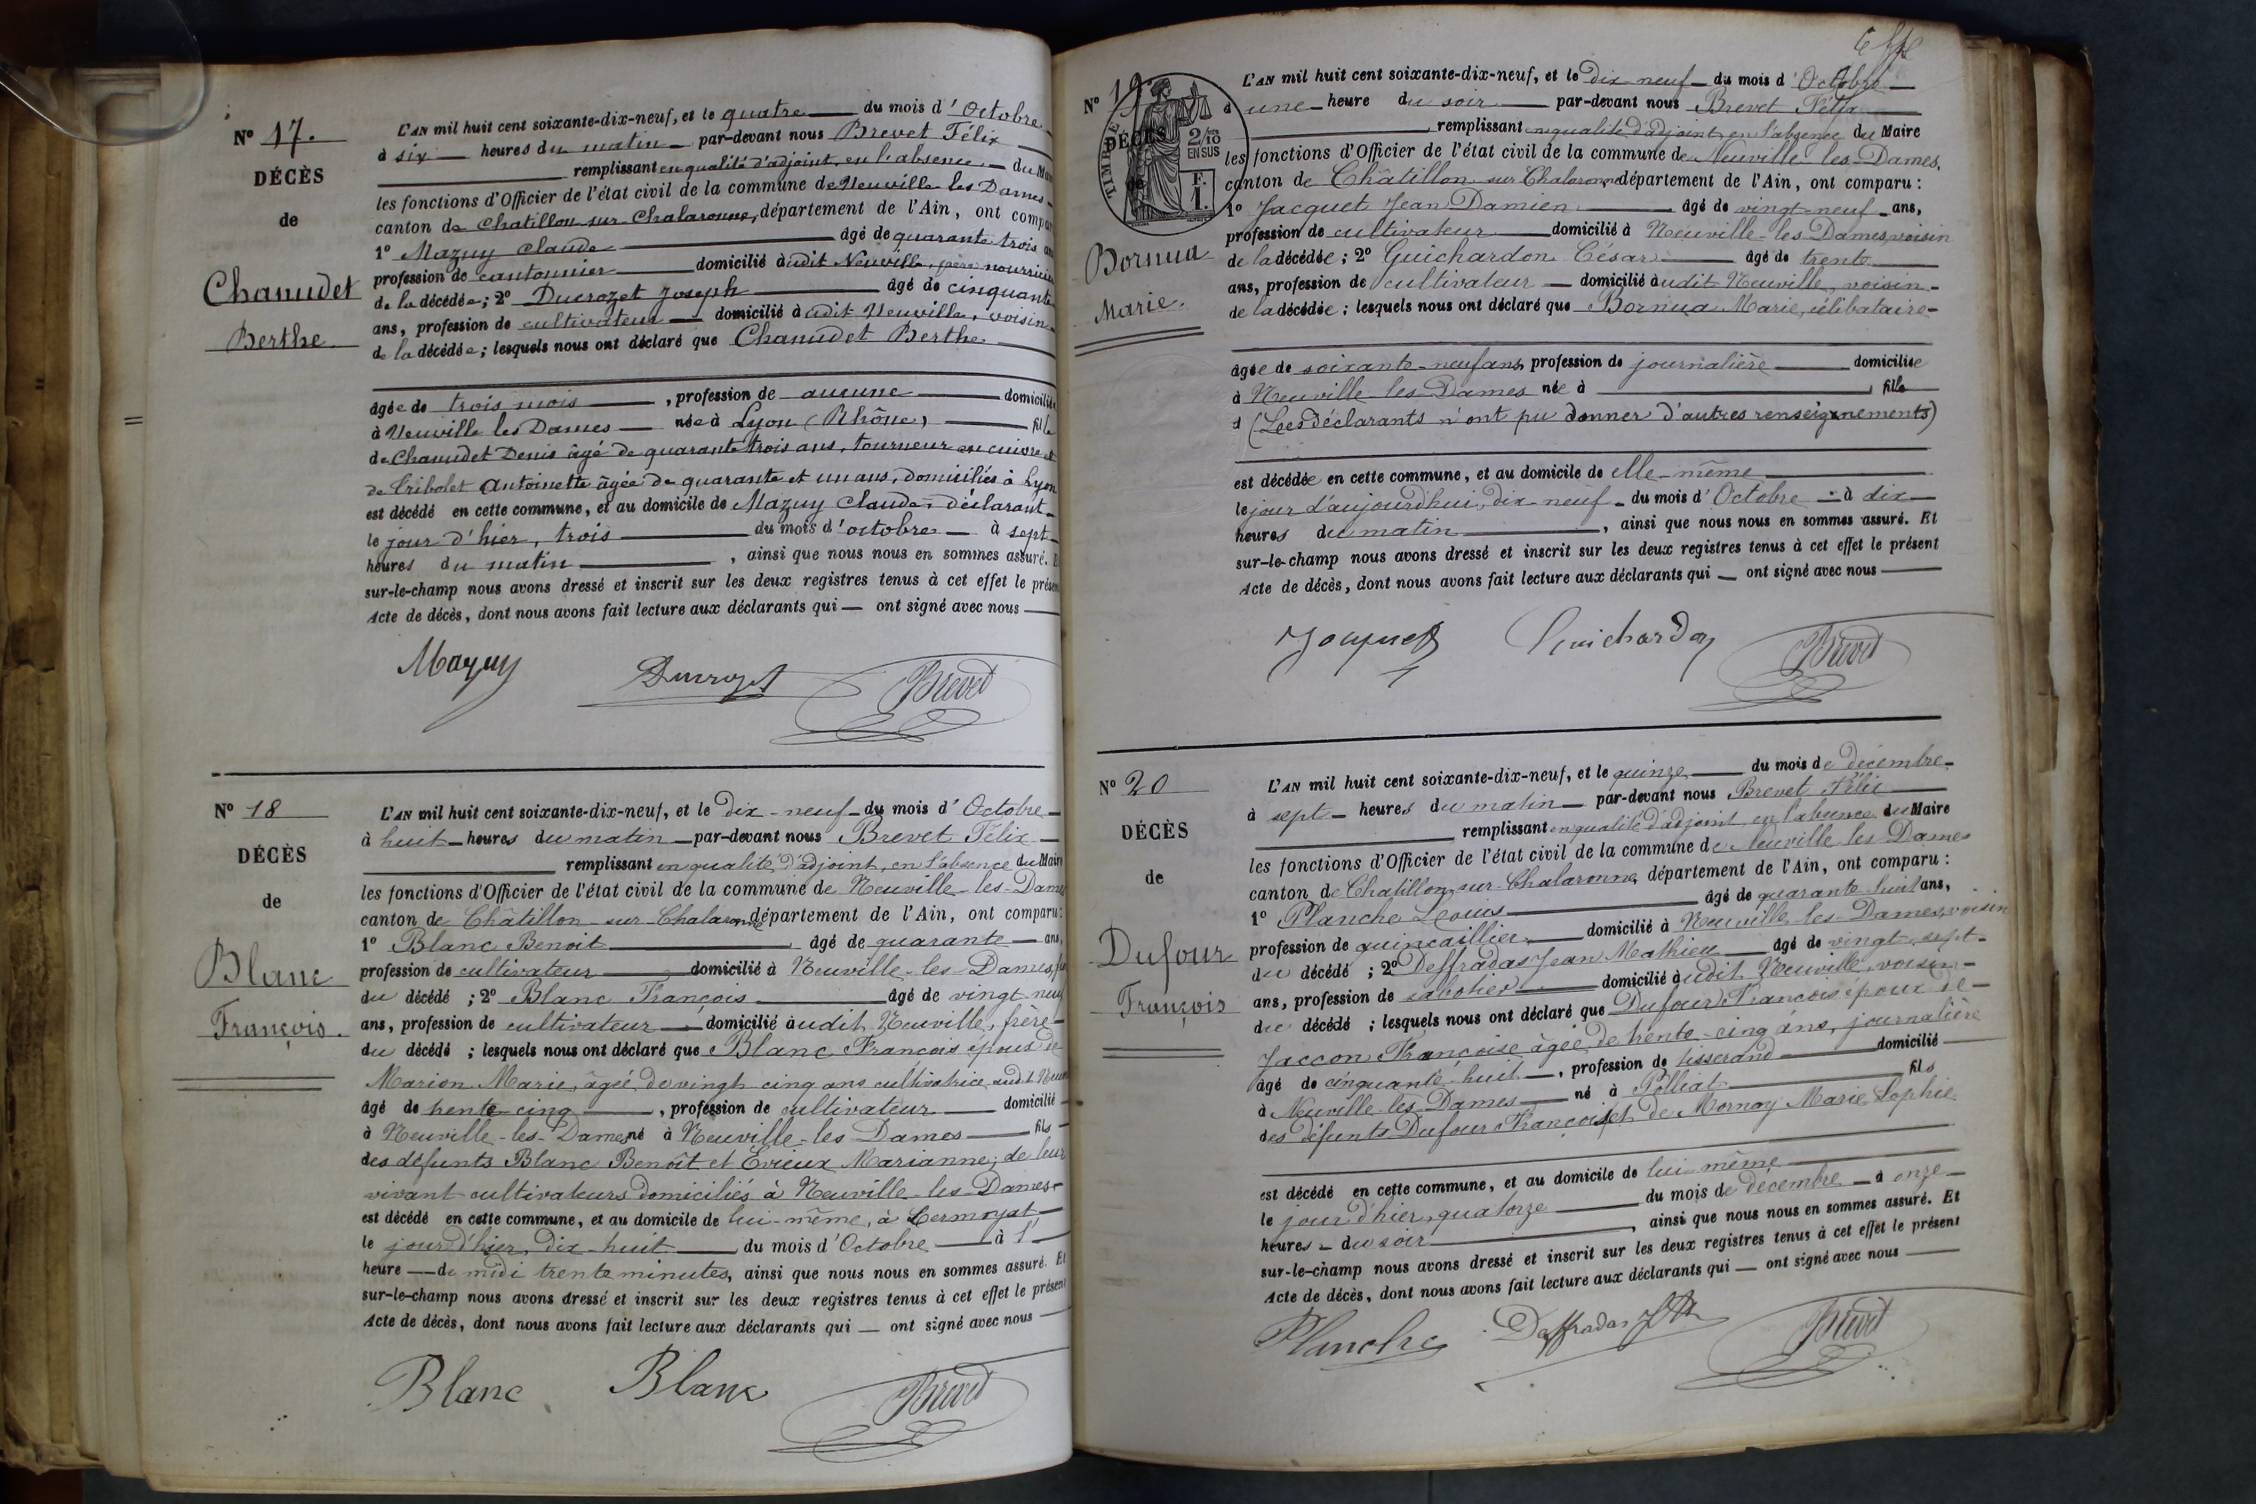 N° 17.
DÉCÈS
de
Chanudet
Berthe
L'AN mil huit cent soixante-dix-neuf, et le quatre du mois d'Octobre
à six heures du matin par-devant nous Brevet Félix
remplissant en qualité d'adjoint, en l'absence du Maire
les fonctions d'Officier de l'état civil de la commune de Neuville les Dames
canton de Chatillon sur Chalaronne, département de l'Ain, ont compar
1° Mazuy Claude âgé de quarante trois ans
profession de cantonnier domicilié à udit Neuville, père nourricier
de la décédée; 2° Ducrozet Joseph âgé de cinquante
ans, profession de cultivateur domicilié à udit Neuville, voisin
de la décédée; lesquels nous ont déclaré que Chanudet Berthe
âgée de trois mois, profession de aucune domiciliée
à Neuville les Dames née à Lyon (Rhône) fille
de Chanudet Denis âgé de quarante trois ans, tourneur en cuivre et
de Cribolet Antoinette âgée de quarante et un ans, domiciliés à Lyon
est décédé en cette commune, et au domicile de Mazuy Claude, déclarant
le jour d'hier, trois du mois d'octobre à sept
heures du matin, ainsi que nous nous en sommes assuré. Et
sur-le-champ nous avons dressé et inscrit sur les deux registres tenus à cet effet le présent
Acte de décès, dont nous avons fait lecture aux déclarants qui ont signé avec nous
Mazuy Ducrozet Brevet
N° 18
DÉCÈS
de
Blanc
François.
L'AN mil huit cent soixante-dix-neuf, et le dix-neuf du mois d'Octobre
à huit heures du matin par-devant nous Brevet Félix
remplissant en qualité d'adjoint, en l'absence du Maire
les fonctions d'Officier de l'état civil de la commune de Neuville-les-Dames
canton de Châtillon-sur-Chalaronne département de l'Ain, ont comparu:
1° Blanc Benoit âgé de quarante ans,
profession de cultivateur domicilié à Neuville-les-Dames,
du décédé ; 2° Blanc François âgé de vingt neuf
ans, profession de cultivateur domicilié à udit Neuville, frère
du décédé ; lesquels nous ont déclaré que Blanc François époux de
Marion Marie, âgée de vingt cinq ans cultivatrice audit Neuv
âgé de trente-cinq, profession de cultivateur domicilié
à Neuville-les-Dames né à Neuville-les Dames fils
des défunts Blanc Benoît et Evieux Marianne, de leur
vivant cultivateurs domiciliés à Neuville-les-Dames
est décédé en cette commune, et au domicile de lui-même, à Cermoyat
le jour d'hier, dix-huit du mois d'Octobre à 1
heure de midi trente minutes, ainsi que nous nous en sommes assuré. Et
sur-le-champ nous avons dressé et inscrit sur les deux registres tenus à cet effet le présent
Acte de décès, dont nous avons fait lecture aux déclarants qui ont signé avec nous
Blanc Blanc Brevet
N° 19.
DÉCÈS
de
TIMBRE
2/10
EN SUS
F.
1.
Bornua
Marie.
L'AN mil huit cent soixante-dix-neuf, et le dix neuf du mois d'Octobre
à une heure du soir par-devant nous Brevet Félix
remplissant en qualité d'adjoint, en l'absence du Maire
les fonctions d'Officier de l'état civil de la commune de Neuville-les-Dames,
canton de Châtillon-sur-Chalaronne département de l'Ain, ont comparu:
1° Jacquet Jean Damien âgé de vingt-neuf ans,
profession de cultivateur domicilié à Neuville-les Dames, voisin
de la décédée; 2° Guichardon César âgé de trente
ans, profession de cultivateur domicilié à udit Neuville, voisin
de la décédée; lesquels nous ont déclaré que Bornua Marie, célibataire
âgée de soixante-neuf ans, profession de journalière domiciliée
à Neuville-les-Dames née à fille
d (Les déclarants n'ont pu donner d'autres renseignements)
est décédée en cette commune, et au domicile de elle-même
le jour d'aujourd'hui, dix-neuf du mois d'Octobre à dix
heures du matin, ainsi que nous nous en sommes assuré. Et
sur-le-champ nous avons dressé et inscrit sur les deux registres tenus à cet effet le présent
Acte de décès, dont nous avons fait lecture aux déclarants qui ont signé avec nous
Jacquet Guichardon Brevet
N° 20
DÉCÈS
de
Dufour
François
L'AN mil huit cent soixante-dix-neuf, et le quinze du mois de décembre
à sept heures du matin par-devant nous Brevet Félix
remplissant en qualité d'adjoint en l'absence du Maire
les fonctions d'Officier de l'état civil de la commune de Neuville-les-Dames
canton de Chatillon-sur-Chalaronne, département de l'Ain, ont comparu:
1° Planche Louis âgé de quarante-huit ans,
profession de quincaillier, domicilié à Neuville-les-Dames, voisin
du décédé ; 2° Deffradas Jean Mathieu âgé de vingt-sept
ans, profession de sabotier domicilié à udit Neuville, voisin
du décédé ; lesquels nous ont déclaré que Dufour François époux de
Jaccon Françoise âgée de trente-cinq ans, journalière
âgé de cinquante-huit, profession de tisserand domicilié
à Neuville-les-Dames né à Polliat fils
des défunts Dufour François et de Mornay Marie Sophie
est décédé en cette commune, et au domicile de lui-même
le jour d'hier, quatorze du mois de décembre à onze
heures du soir, ainsi que nous nous en sommes assuré. Et
sur-le-champ nous avons dressé et inscrit sur les deux registres tenus à cet effet le présent
Acte de décès, dont nous avons fait lecture aux déclarants qui ont signé avec nous
Planche Deffradas Brevet